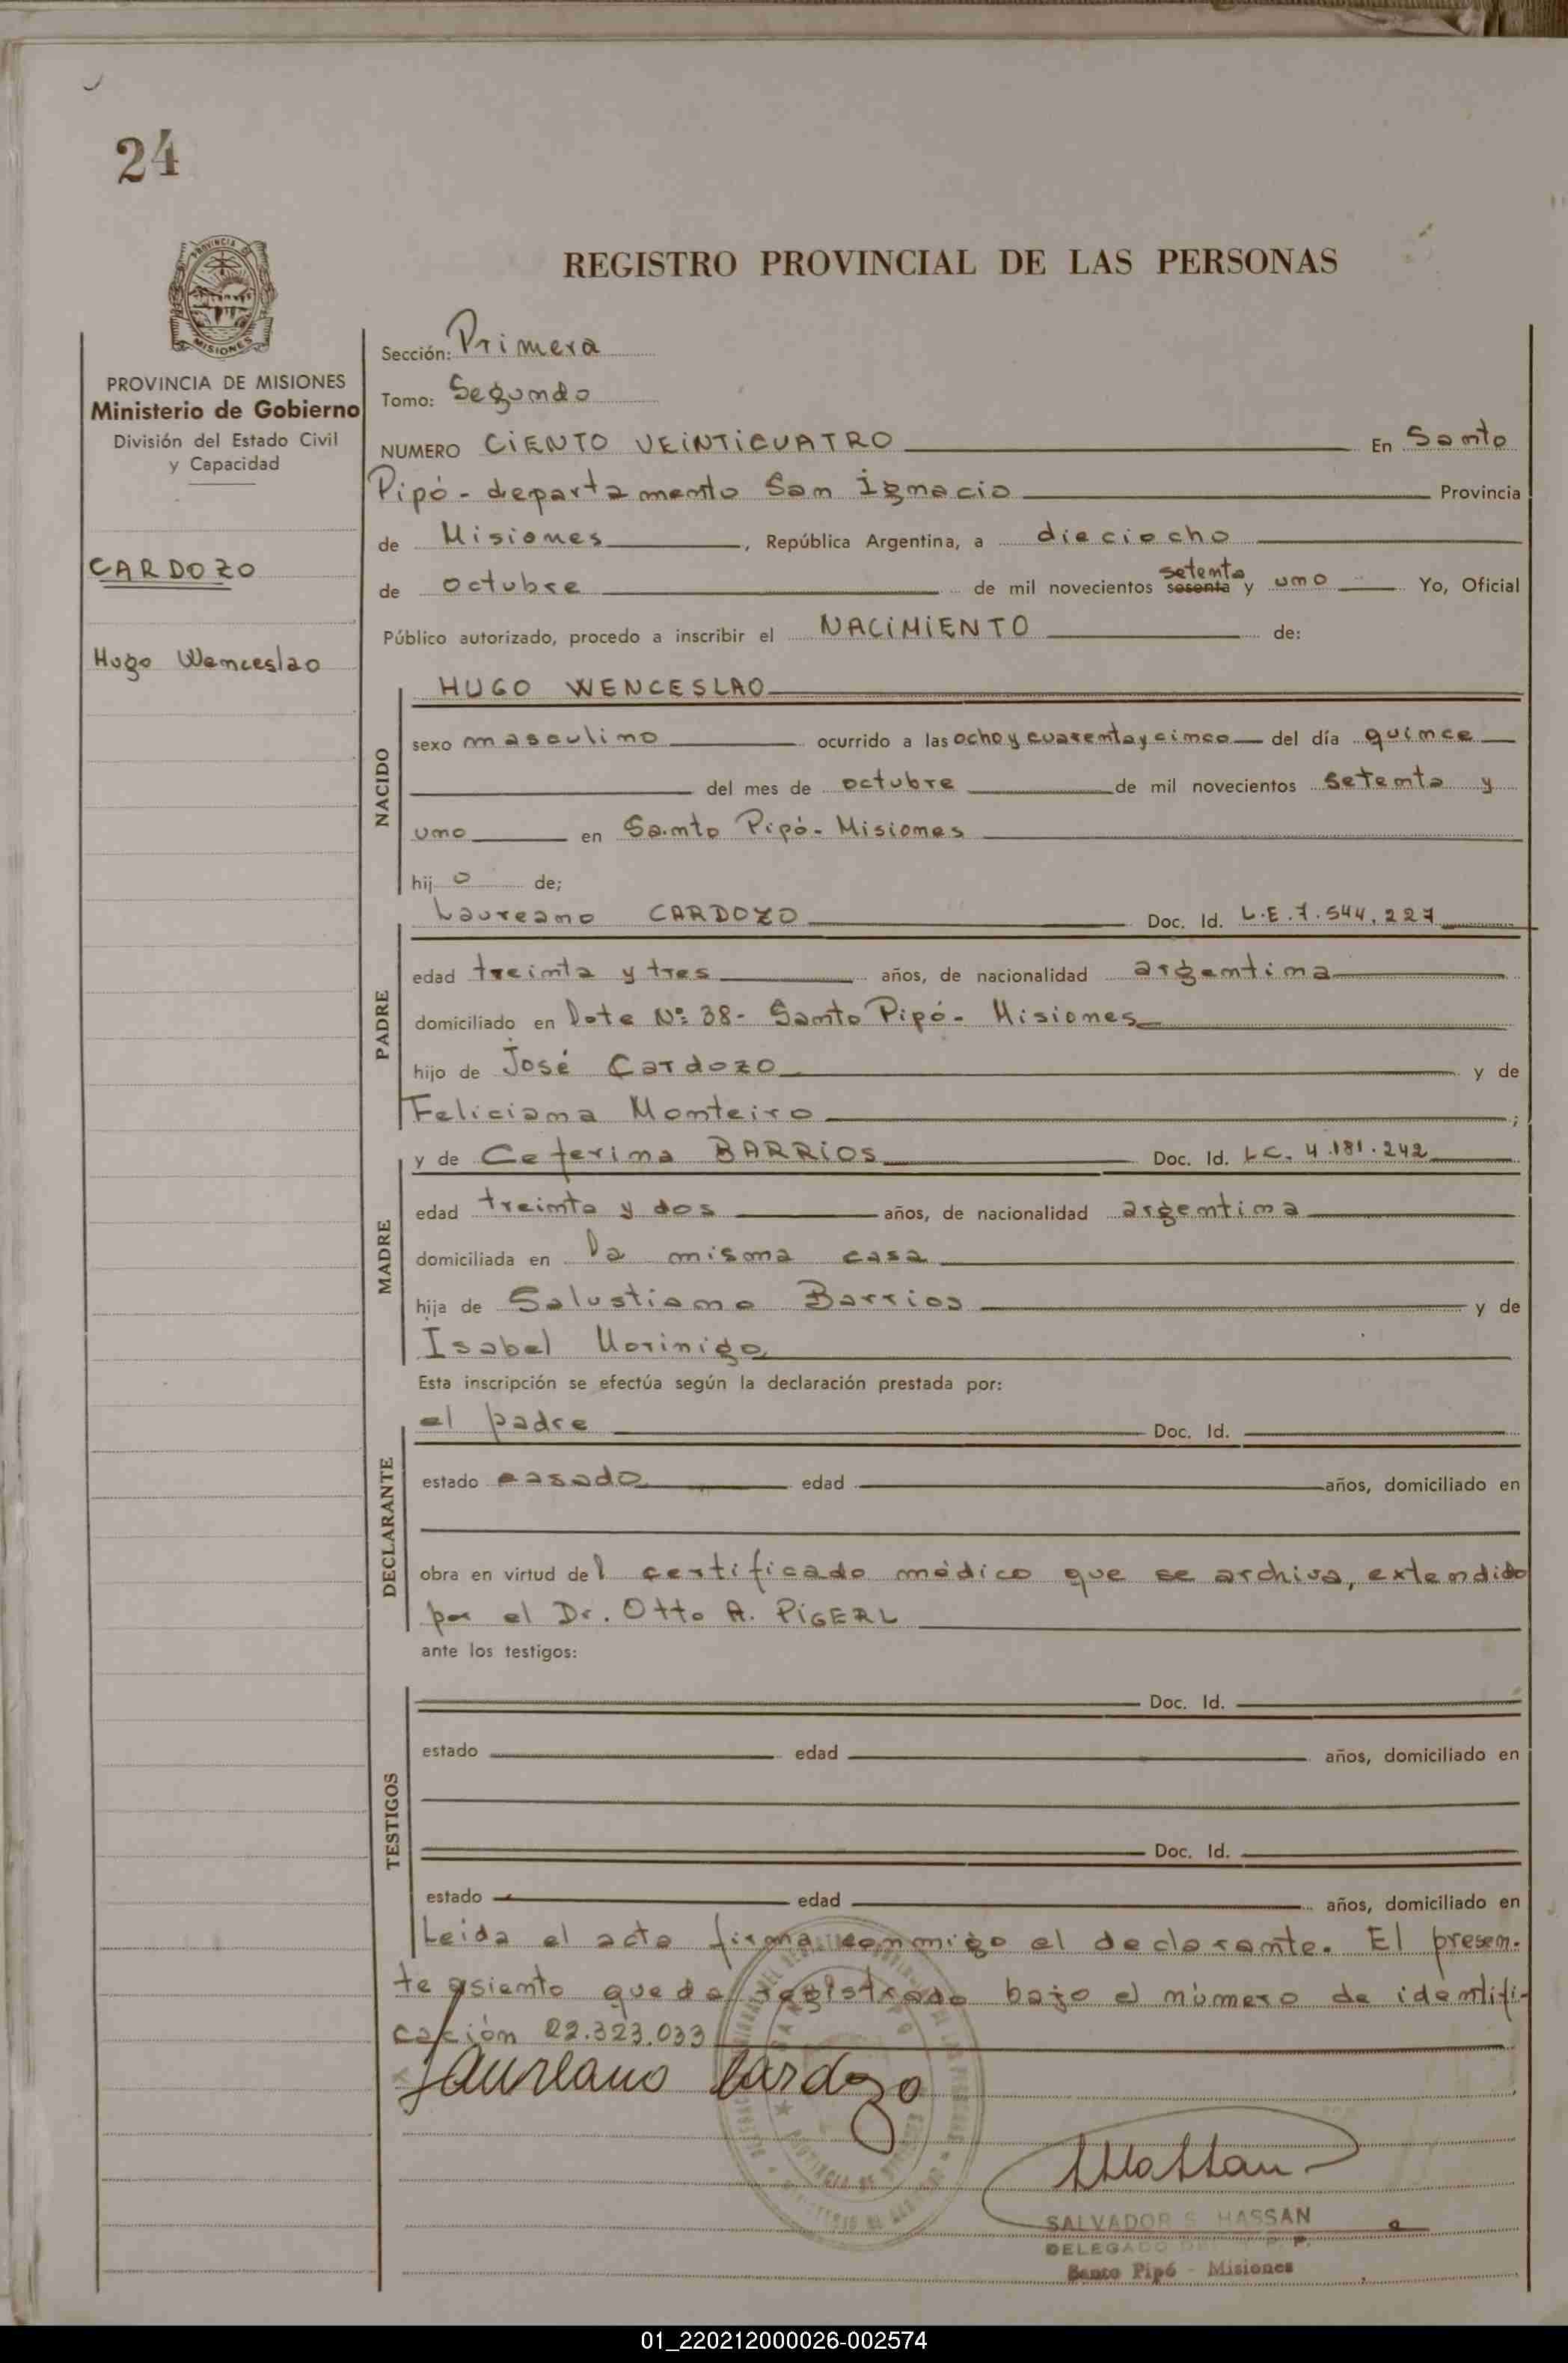 24
REGISTRO PROVINCIAL DE LAS PERSONAS
PROVINCIA DE MISIONES
Ministerio de Gobierno
División del Estado Civil
y Capacidad
CARDOZO
Hugo Wenceslao
Sección: Primera
Tomo: Segundo
NUMERO CIENTO VEINTICUATRO En Santo
Pipó - departamento San Ignacio Provincia
de Misiones, República Argentina, a dieciocho
de octubre de mil novecientos sesenta setenta y uno Yo, Oficial
Público autorizado, procedo a inscribir el NACIMIENTO de:
NACIDO
HUGO WENCESLAO
sexo masculino ocurrido a las ocho y cuarenta y cinco del día quince
del mes de octubre de mil novecientos setenta y
uno en Santo Pipó - Misiones
hij o de;
PADRE
Laureano CARDOZO Doc. Id. L.E. 7.544.227
edad treinta y tres años, de nacionalidad argentina
domiciliado en lote Nº 38 - Santo Pipó - Misiones
hijo de José Cardozo y de
Feliciana Monteiro ;
MADRE
y de Ceferina BARRIOS Doc. Id. L.C. 4.181.242
edad treinta y dos años, de nacionalidad argentina
domiciliada en la misma casa
hija de Salustiano Barrios y de
Isabel Morinigo
Esta inscripción se efectúa según la declaración prestada por:
DECLARANTE
el padre Doc. Id.
estado casado edad años, domiciliado en
obra en virtud del certificado médico que se archiva, extendido
por el Dr. Otto A. PIGERL
ante los testigos:
TESTIGOS
Doc. Id.
estado edad años, domiciliado en
Doc. Id.
estado edad años, domiciliado en
Leida el acta firma conmigo el declarante. El presen-
te asiento queda registrado bajo el número de identifi-
cación 22.323.033
Laureano Cardozo
SALVADOR S. HASSAN
DELEGADO
Santo Pipó - Misiones
01_220212000026-002574